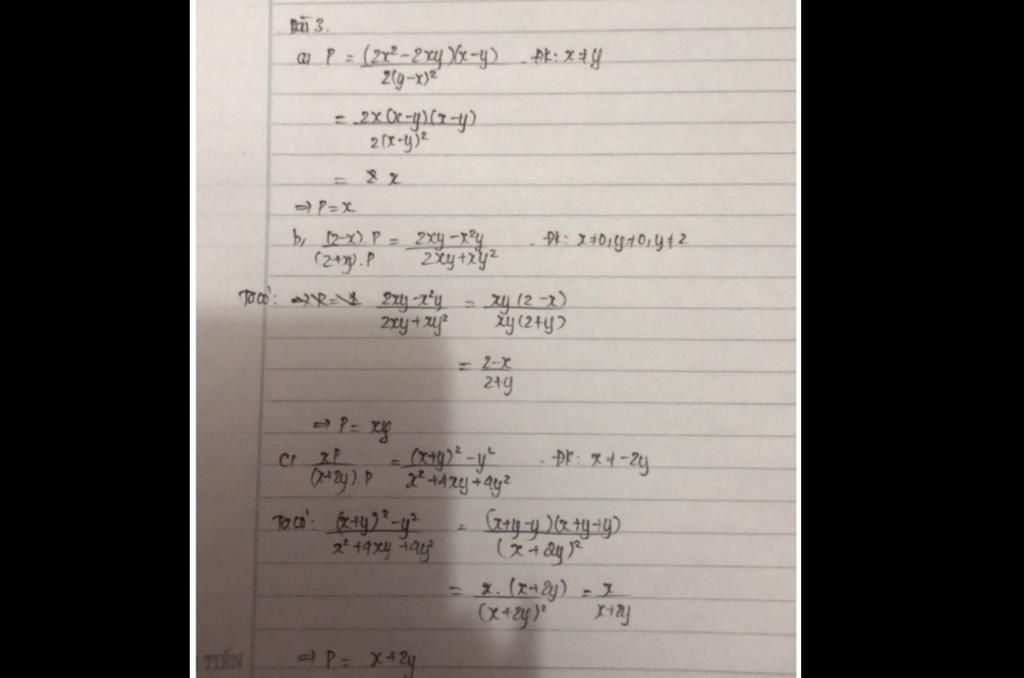 Bài 3.
a) P = (2x² - 2xy)(x-y) / 2(y-x)² . ĐK: x ≠ y
= 2x(x-y)(x-y) / 2(x-y)²
= x
⇒ P = x
b, (2-x).P / (2+y).P = 2xy - x²y / 2xy + xy² . ĐK: x ≠ 0, y ≠ 0, y ≠ 2
Ta có: ⇒ 2xy - x²y / 2xy + xy² = xy(2-x) / xy(2+y)
= 2-x / 2+y
⇒ P = xy
c, xP / (x+2y).P = (x+y)² - y² / x² + 4xy + 4y² . ĐK: x ≠ -2y
Ta có: (x+y)² - y² / x² + 4xy + 4y² = (x+y-y)(x+y+y) / (x+2y)²
= x.(x+2y) / (x+2y)² = x / x+2y
⇒ P = x+2y
TIẾN